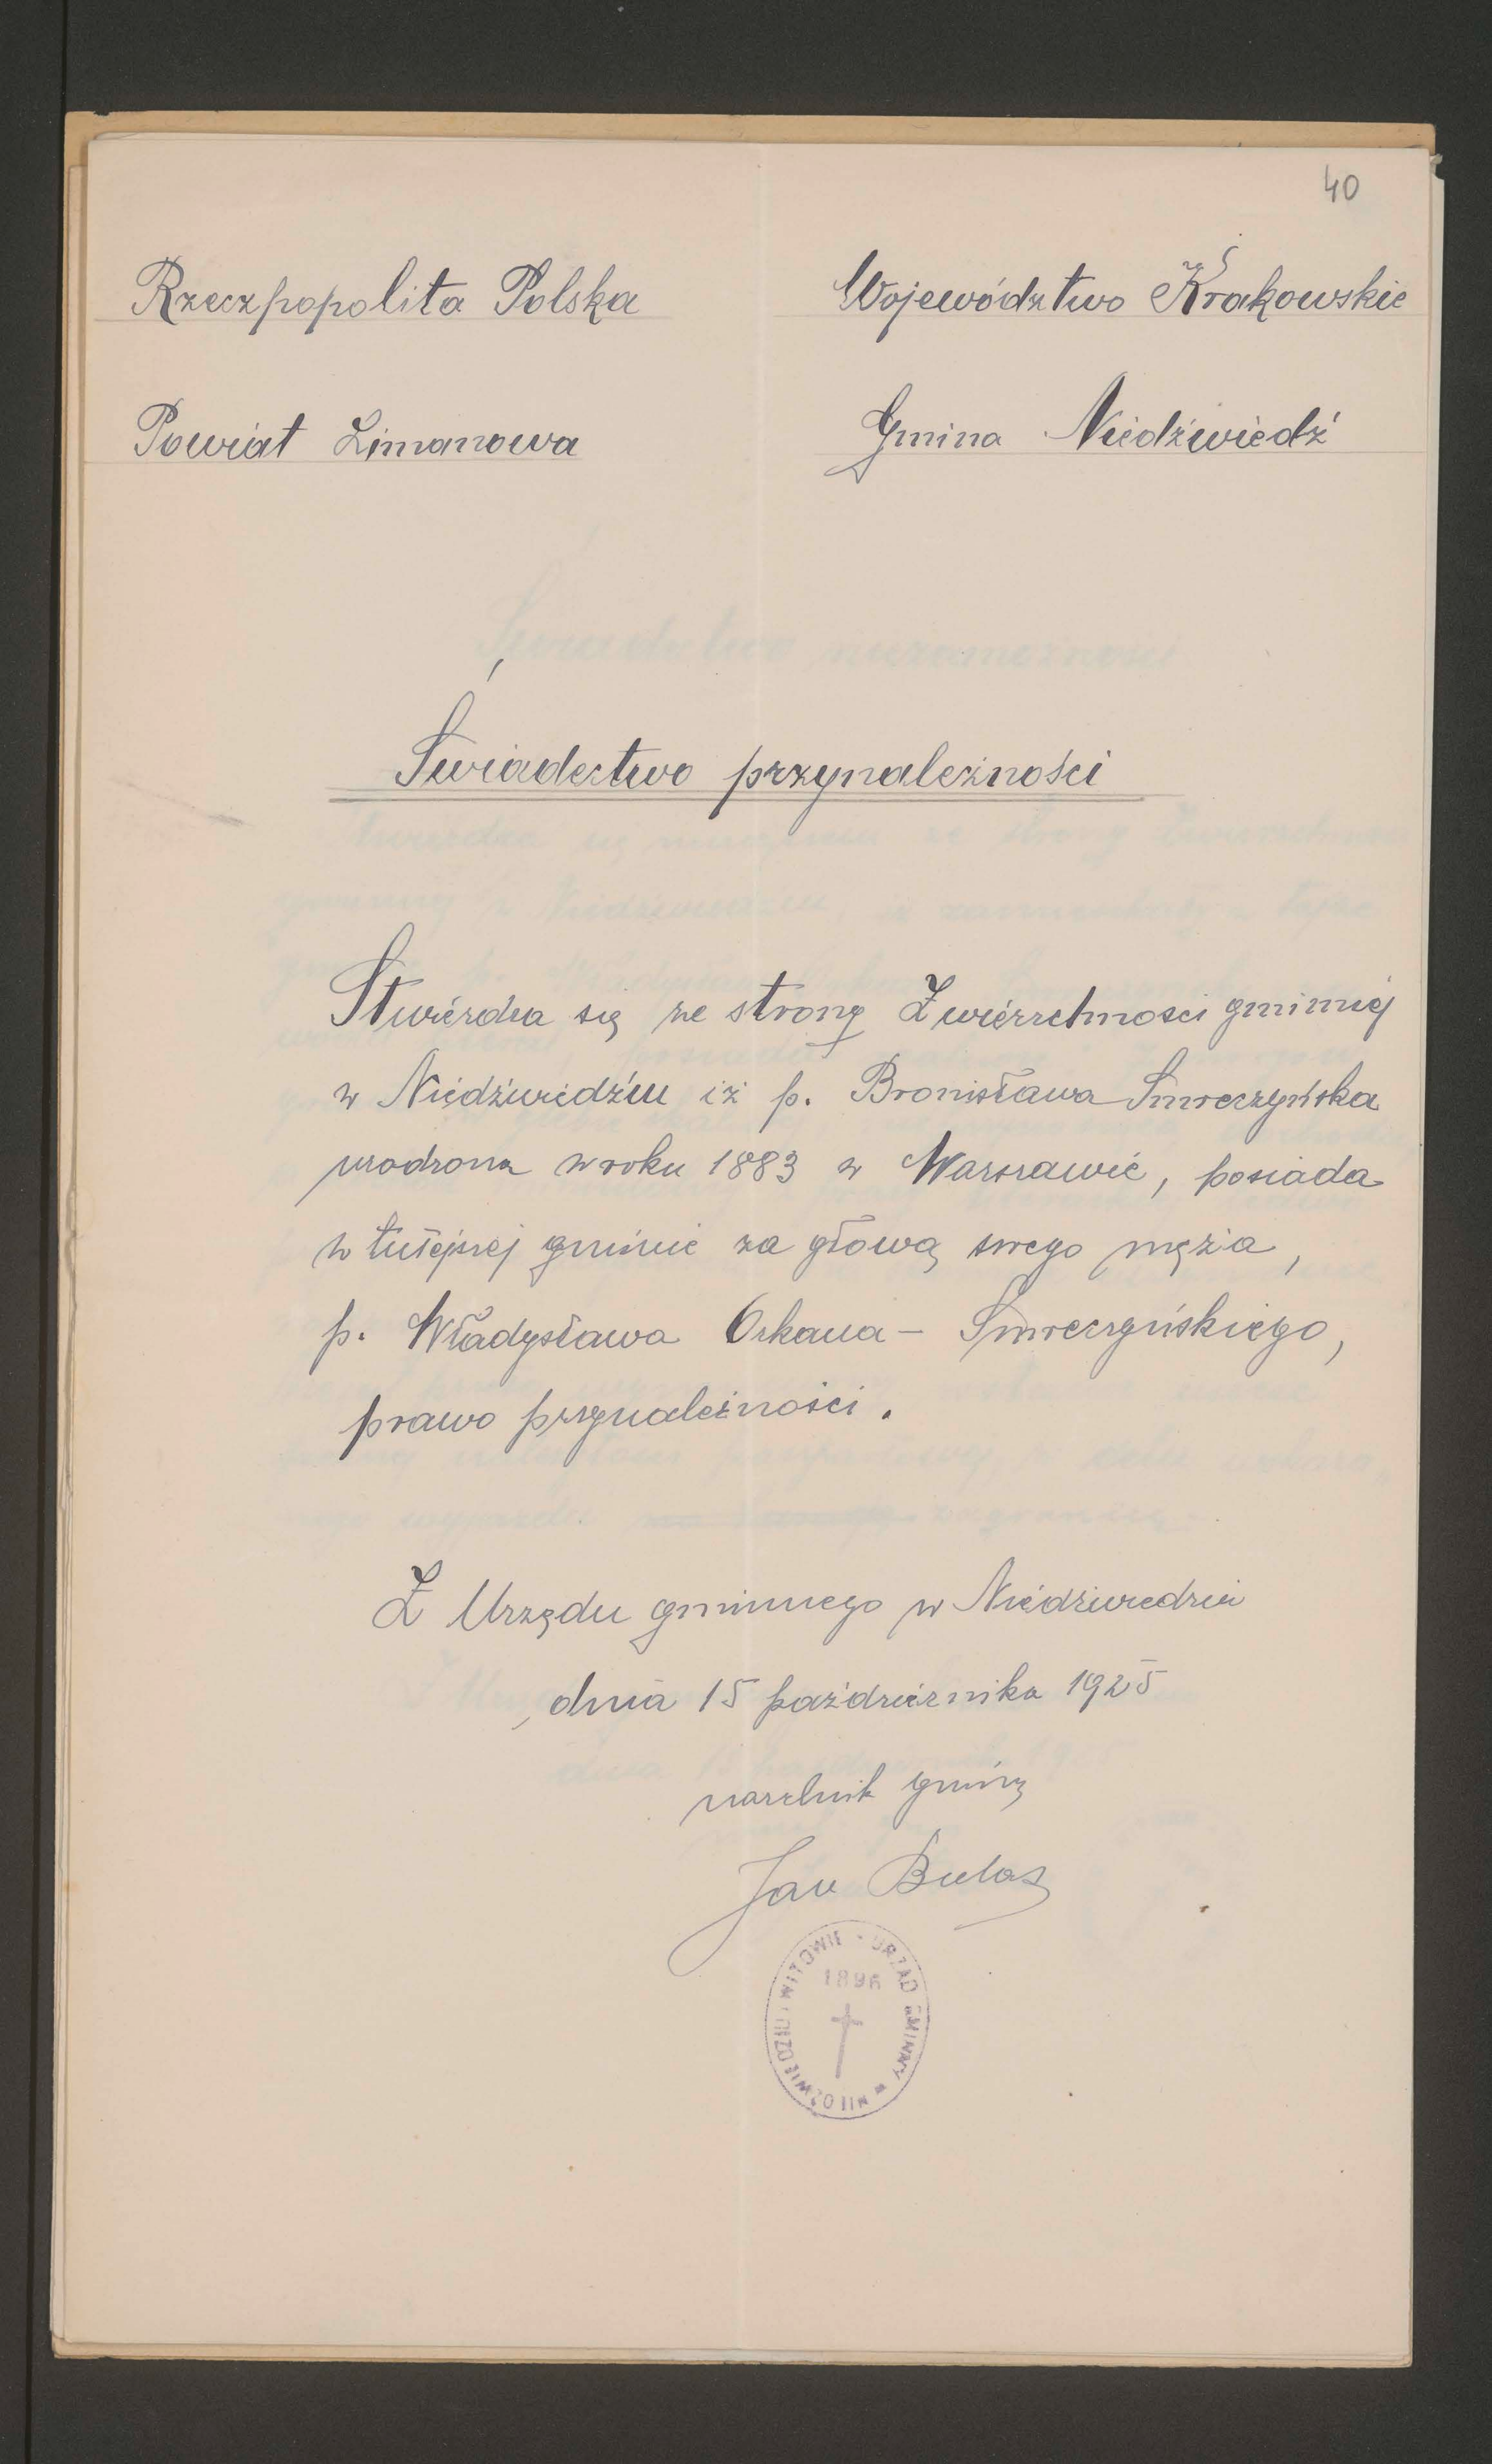 40
Rzeczpopolita Polska
Województwo Krakowskie
Powiat Limanowa
Gmina Niedźwiedź
Świadectwo przynależności
Stwierdza się ze strony Zwierzchności gminnej
w Niedźwiedziu iż p. Bronisława Smreczyńska
urodzona w roku 1883 w Warszawie, posiada
w tutejszej gminie za głową swego męża,
p. Władysława Orkana - Smreczyńskiego,
prawo przynależności.
Z Urzędu gminnego w Niedźwiedziu
, dnia 15 października 1925
naczelnik gminy
Jan
URZĄD GMINNY w NIEDŹWIEDZIU
1896